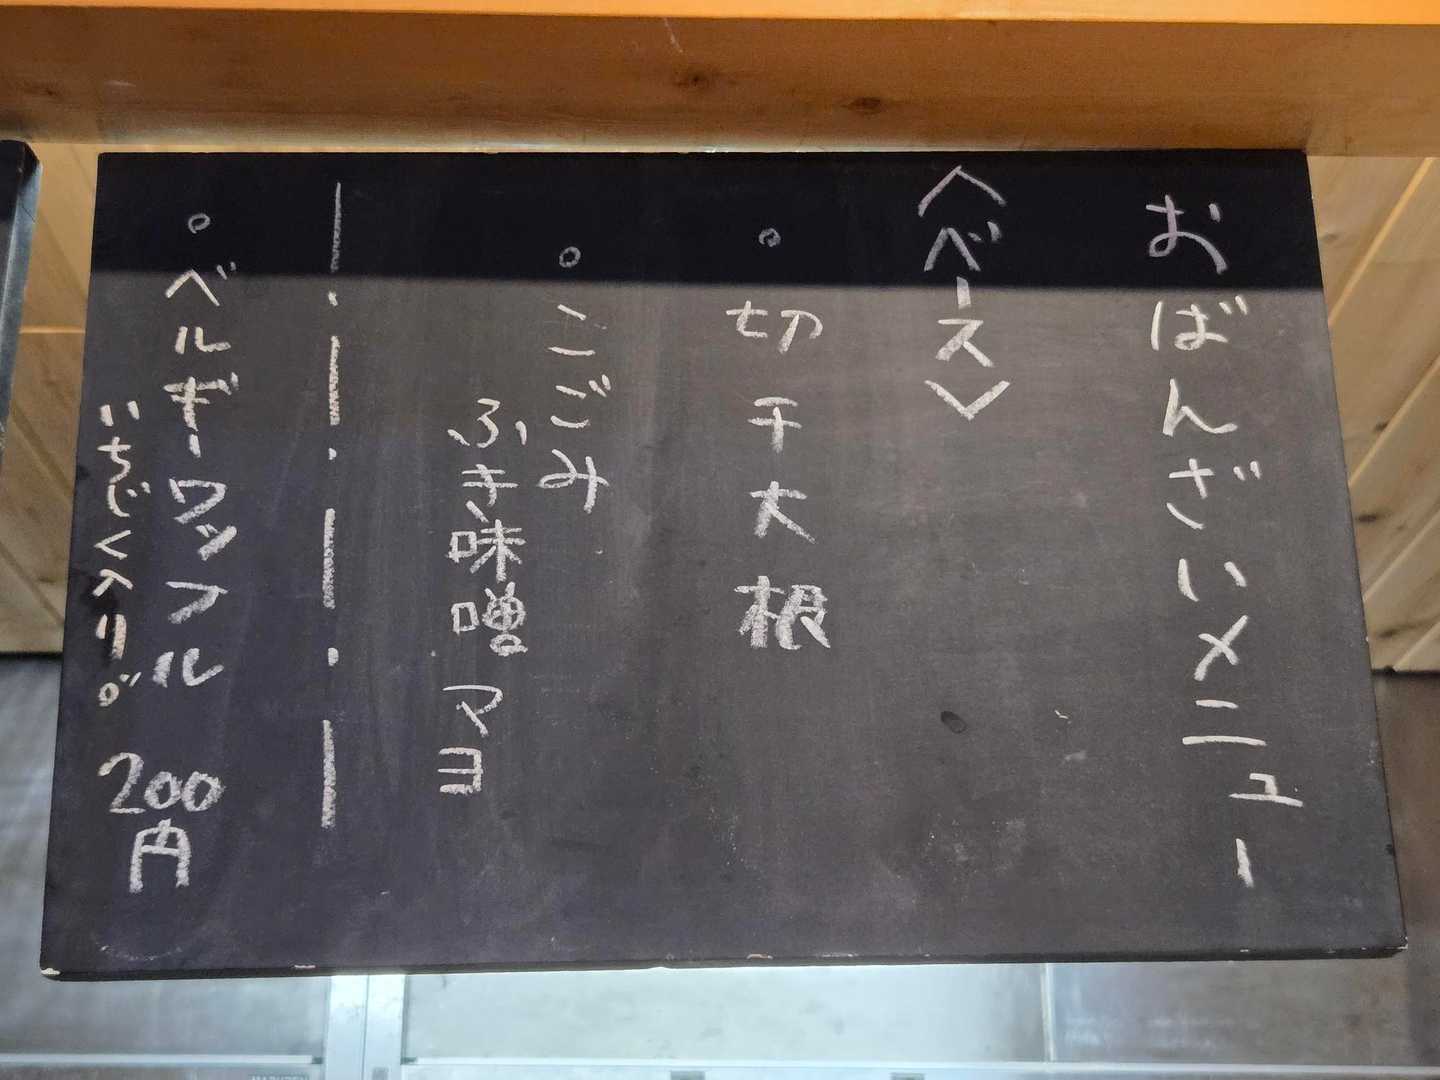 おばんざいメニュー
〈ベース〉
。切干大根
。こごみ
ふき味噌マヨ
。ベルギーワッフル 200円
いちじく入り